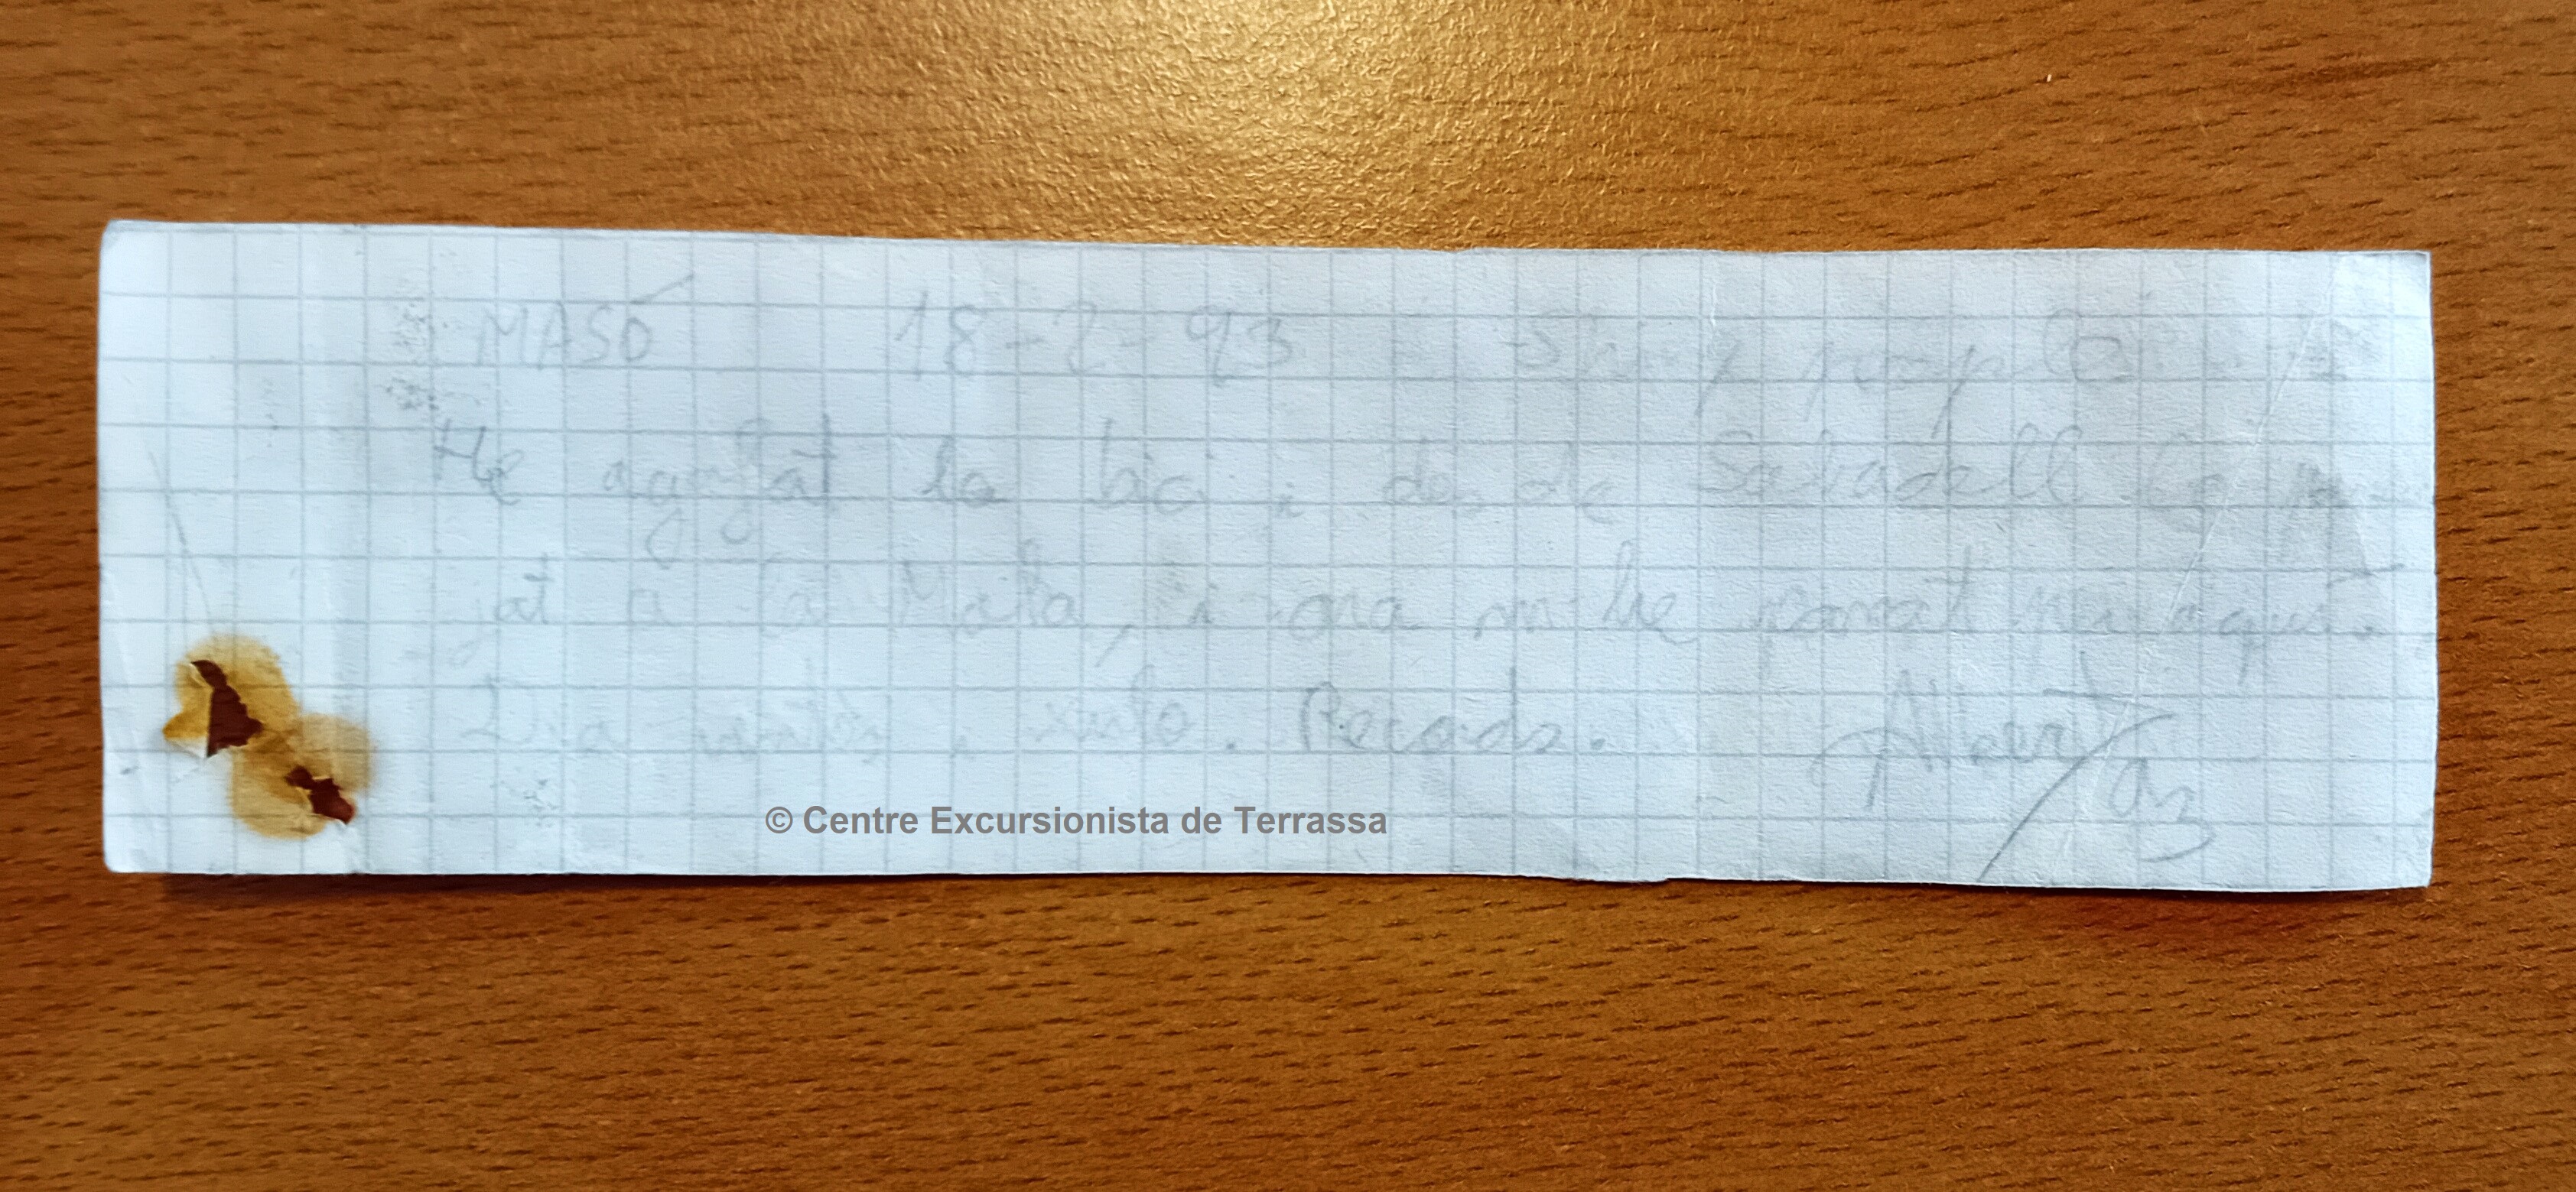 MASÓ 18-2-93
He agafat la bici i des de Sabadell he pu-
jat a la Mola, i ara m'he parat per aquí.
Dia i xulo. Records. Albert
93
© Centre Excursionista de Terrassa